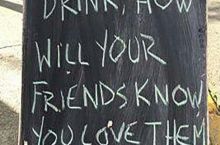 DRINK, HOW
WILL YOUR
FRIENDS KNOW
YOU LOVE THEM